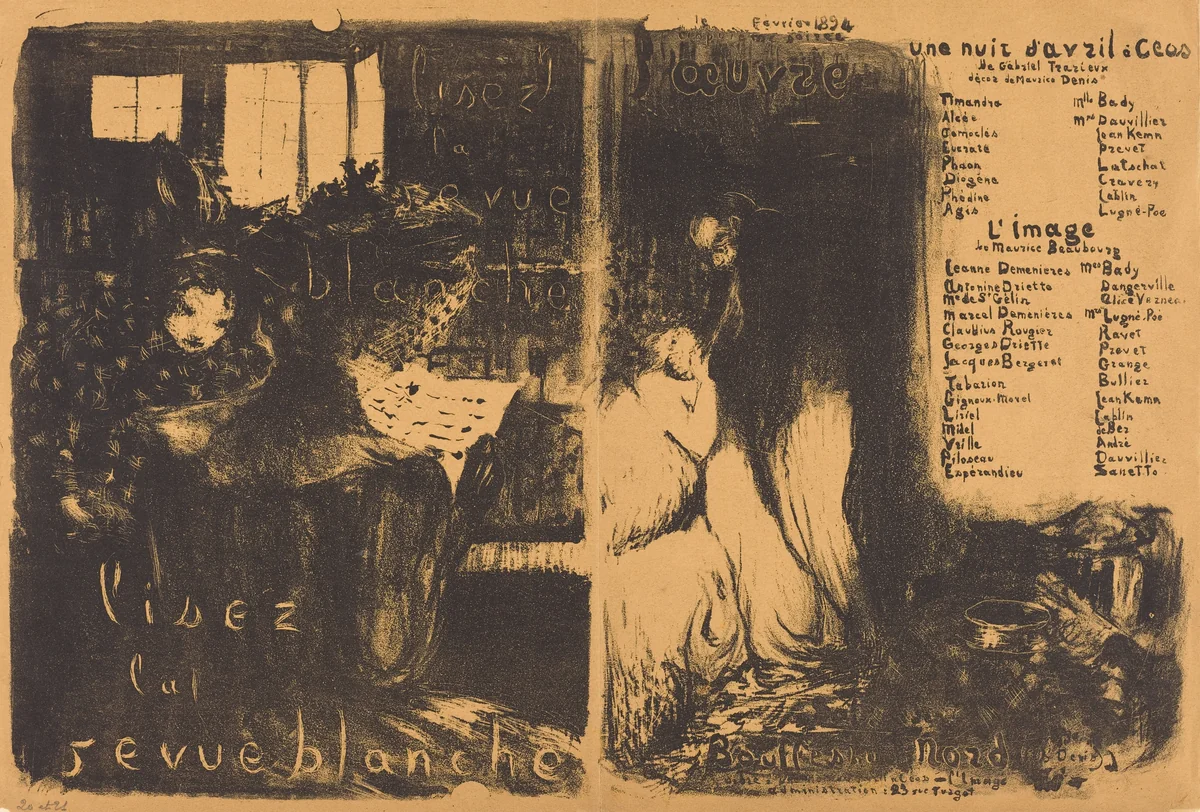 lisez
la
revue
blanche
lisez
la
revue blanche
le Février 1894
œuvre
une nuit d'avril à Ceos
de Gabriel Trarieux
décor de Maurice Denis
Timandra Mlle Bady
Alcée Mrs Dauvillier
Démoclès Jean Kemn
Eucrate Prevet
Phaon Latschat
Diogène Cravery
Phédine Lablin
Agis Lugné-Poe
L'image
de Maurice Beaubourg
Jeanne Demenieres Mes Bady
Antonine Driette Dangerville
Me de St Gélin Alice Vezneau
Marcel Demenières Mrs Lugné-Poe
Claudius Rougier Ravet
Georges Driette Prevet
Jacques Bergeret Grange
Tabarion Bullier
Gignoux-Morel Jean Kemn
Liziel Lablin
Midel de Bez
Vrille André
Piloseau Dauvillier
Espérandieu Sanetto
Bouffes du Nord
l'Image
administration : 23 rue Turgot
20 et 21